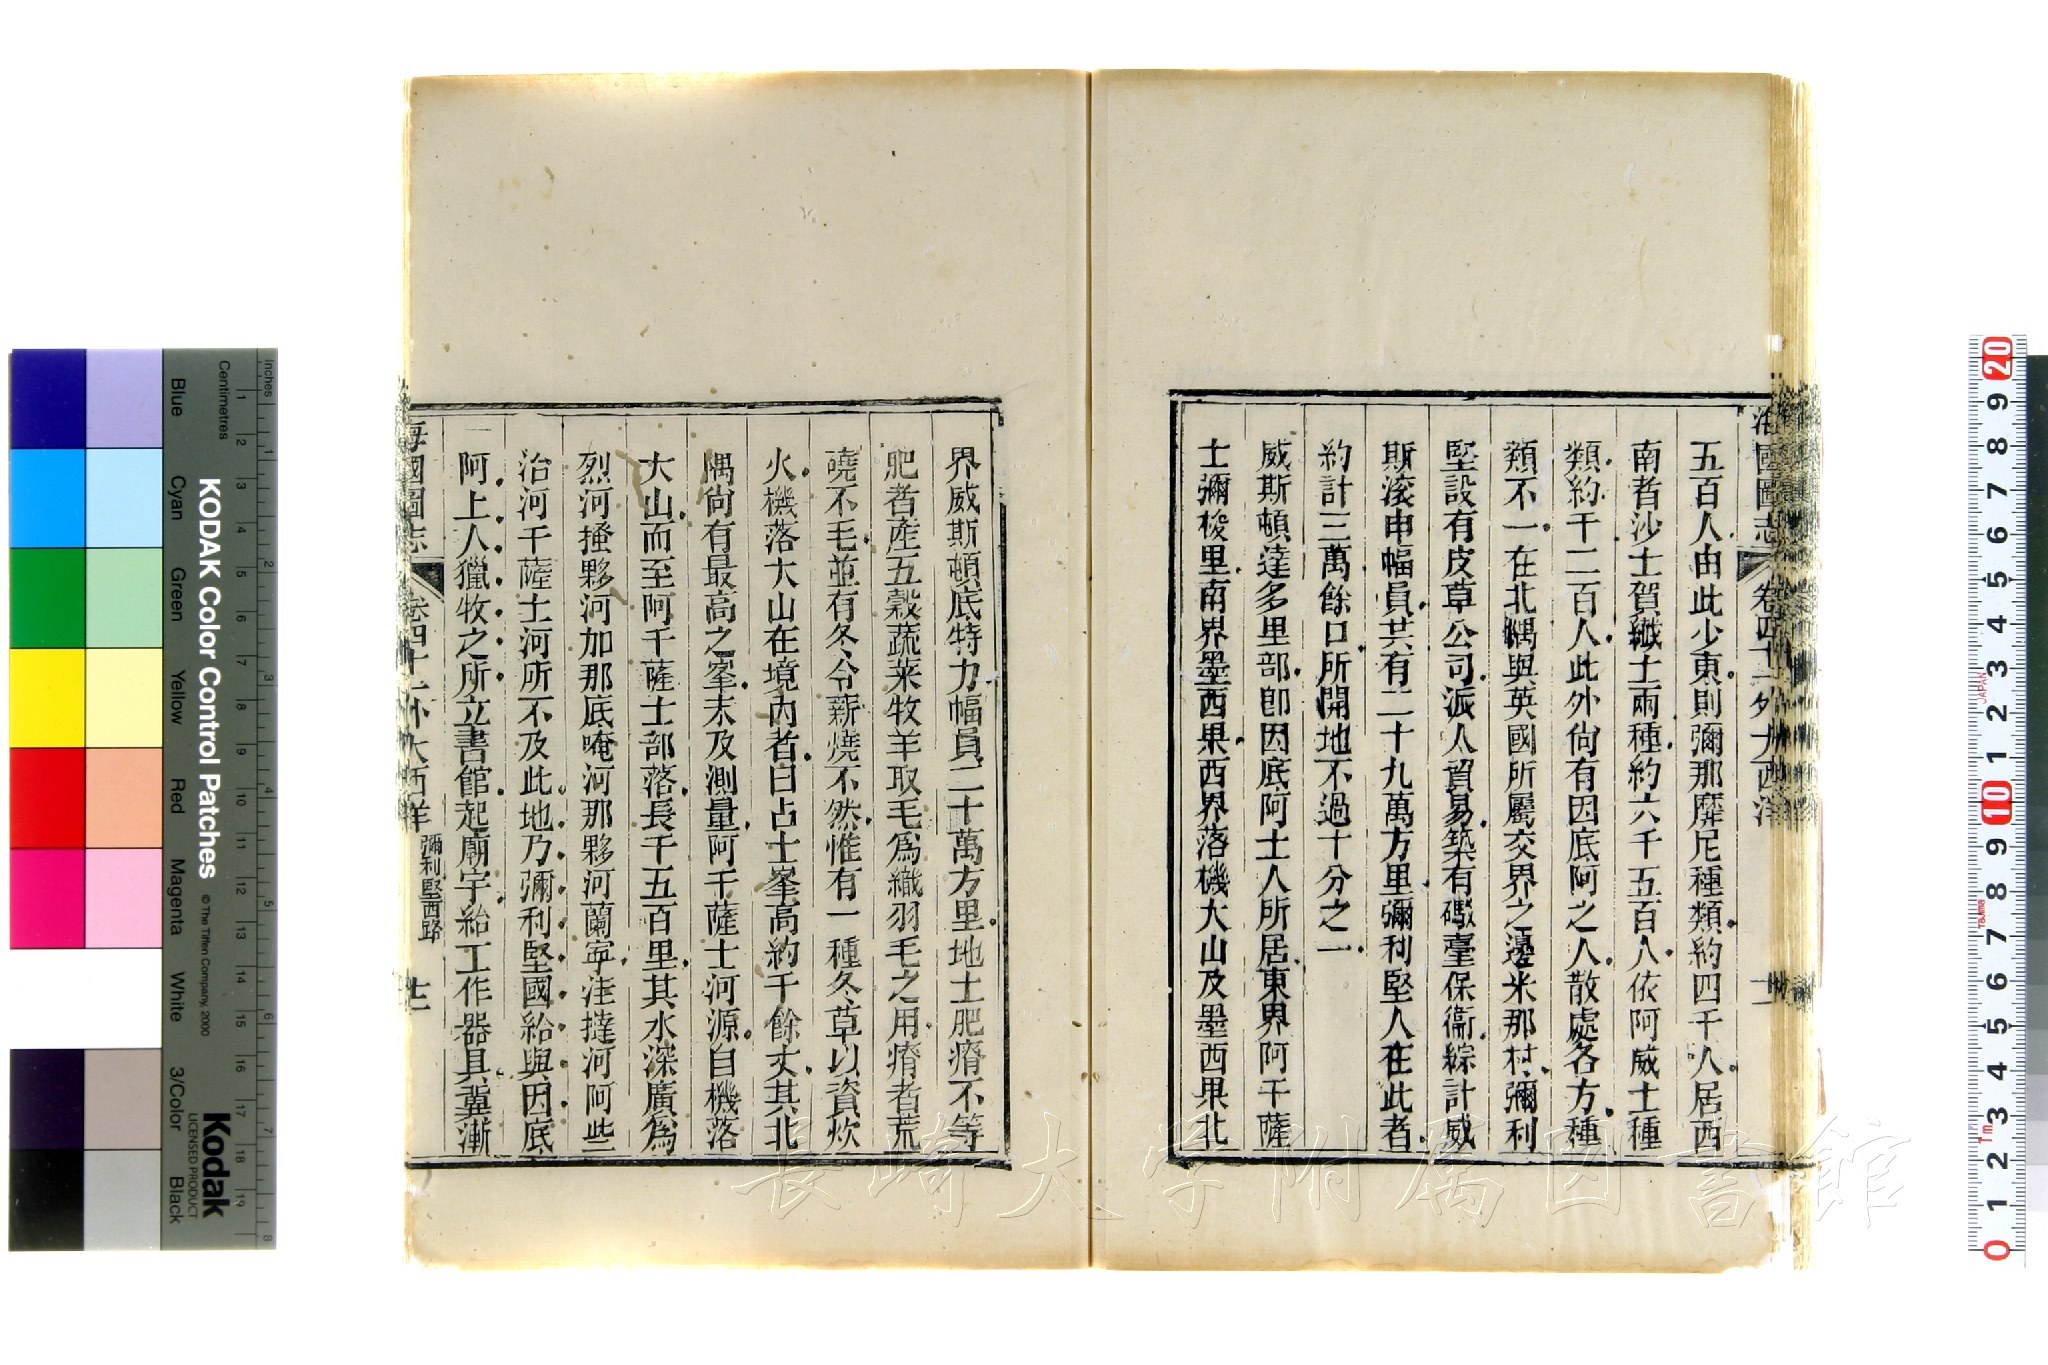 海國圖志 卷四十一 外大西洋 十一
五百人由此少東則彌那靡尼種類約四千人居西
南者沙土賀纎土兩種約六千五百人依阿威土種
類約千二百人此外尙有因底阿之人散處各方種
類不一在北隅與英國所屬交界之邊米那村彌利
堅設有皮草公司派人貿易築有礮臺保衞綜計威
斯滾申幅員共有二十九萬方里彌利堅人在此者
約計三萬餘口所開地不過十分之一
威斯頓達多里部卽因底阿土人所居東界阿干薩
士彌梭里南界墨西果西界落機大山及墨西果北
界威斯頓底特力幅員二十萬方里地土肥瘠不等
肥者產五穀蔬菜牧羊取毛爲織羽毛之用瘠者荒
磽不毛並有冬令薪燒不然惟有一種冬草以資炊
火機落大山在境內者曰占士峯高約千餘丈其北
隅尙有最高之峯未及測量阿干薩士河源自機落
大山而至阿千薩士部落長千五百里其水深廣爲
烈河搔夥河加那底唵河那夥河蘭寕洼撻河阿些
治河干薩士河所不及此地乃彌利堅國給與因底
阿上人獵牧之所立書館起廟宇給工作器具冀漸
海國圖志 卷四十一 外大西洋 彌利堅西路 十二
KODAK Color Control Patches
© The Tiffen Company, 2000
Kodak
LICENSED PRODUCT
Inches
Centimetres
Blue
Cyan
Green
Yellow
Red
Magenta
White
3/Color
Black
長崎大学附属図書館